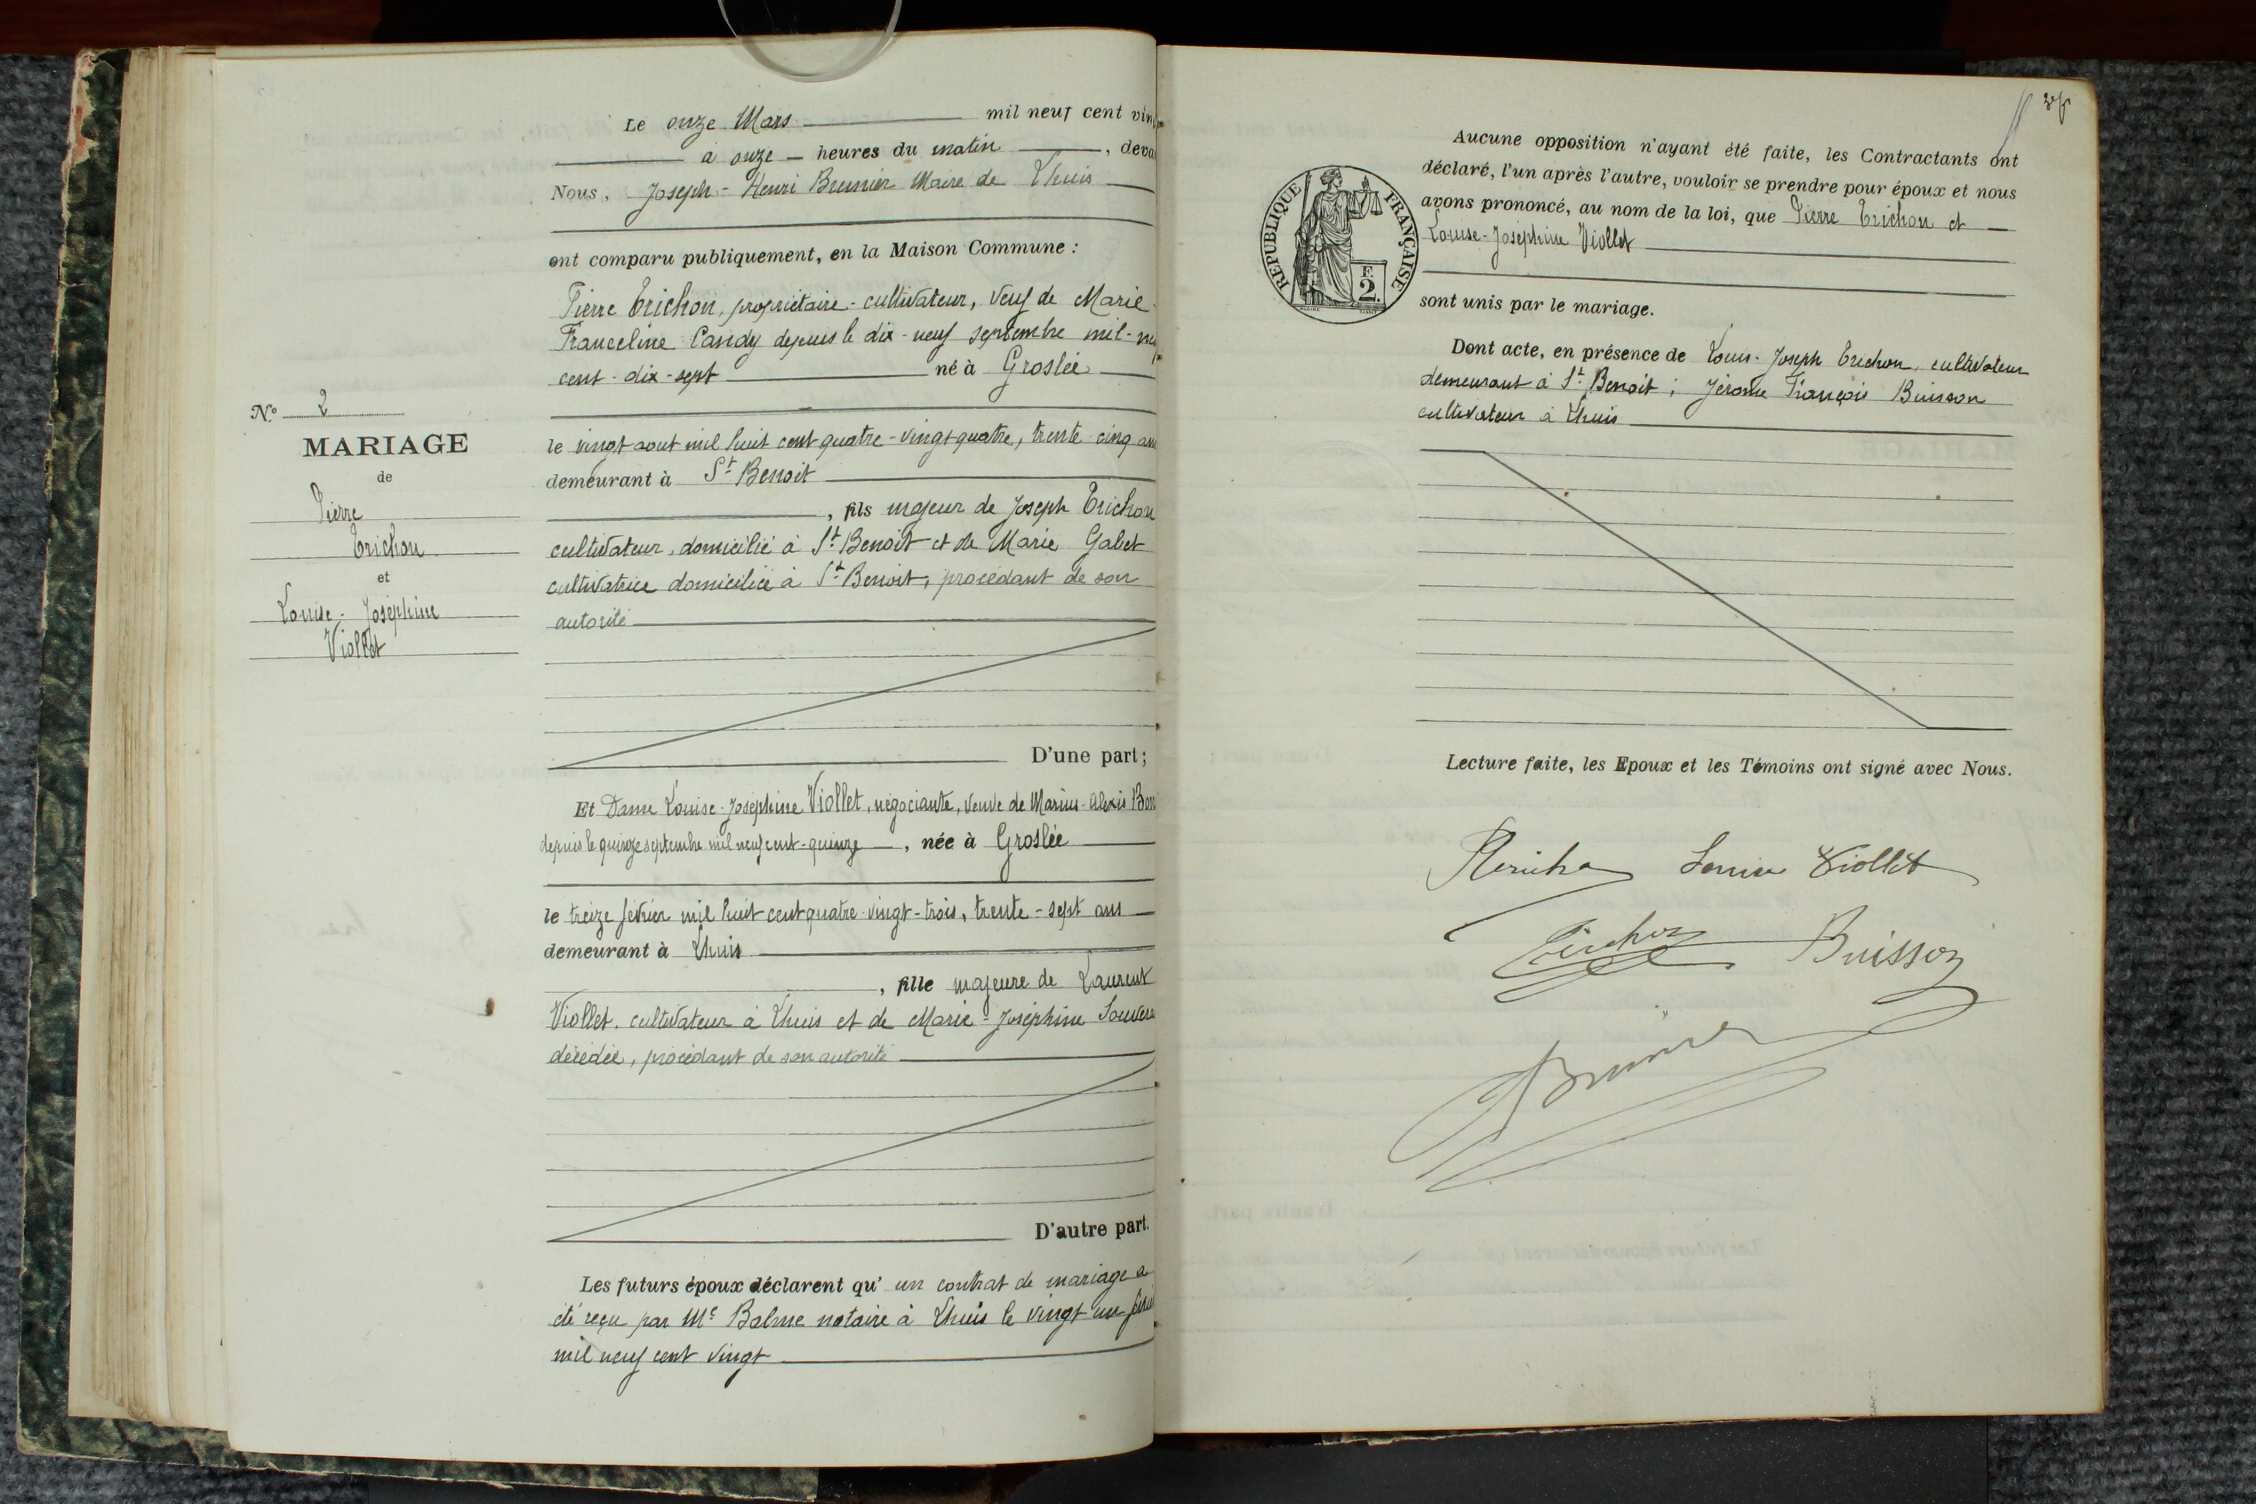 Le onze Mars mil neuf cent vin
à onze heures du matin, deva
Nous, Joseph-Henri Brunier Maire de Lhuis
ont comparu publiquement, en la Maison Commune :
Pierre Trichon, propriétaire-cultivateur, veuf de Marie-
Franceline Candy depuis le dix-neuf septembre mil-neuf
cent-dix-sept né à Groslée
le vingt aout mil huit cent quatre-vingt-quatre, trente-cinq ans
demeurant à St Benoit
, fils majeur de Joseph Trichon
cultivateur, domicilié à St Benoit et de Marie Gabet
cultivatrice domiciliée à St Benoit, procédant de son
autorité
D'une part;
Et Dame Louise-Joséphine Viollet, négociante, veuve de Marius-Alexis
depuis le quinze septembre mil neuf cent-quinze, née à Groslée
le treize février mil huit cent quatre-vingt-trois, trente-sept ans
demeurant à Lhuis
, fille majeure de Laurent
Viollet, cultivateur à Lhuis et de Marie-Joséphine
décédée, procédant de son autorité
D'autre part.
Les futurs époux déclarent qu'un contrat de mariage a
été reçu par Me Balme notaire à Lhuis le vingt un
mil neuf cent vingt
No 2
MARIAGE
de
Pierre
Trichon
et
Louise-Joséphine
Viollet
Aucune opposition n'ayant été faite, les Contractants ont
déclaré, l'un après l'autre, vouloir se prendre pour époux et nous
avons prononcé, au nom de la loi, que Pierre Trichon et
Louise-Joséphine Viollet
sont unis par le mariage.
Dont acte, en présence de Louis-Joseph Trichon, cultivateur
demeurant à St Benoit ; Jérome François Buisson
cultivateur à Lhuis
Lecture faite, les Epoux et les Témoins ont signé avec Nous.
Louise Viollet
Trichon Buisson
Brunier
REPUBLIQUE FRANÇAISE
F.
2.